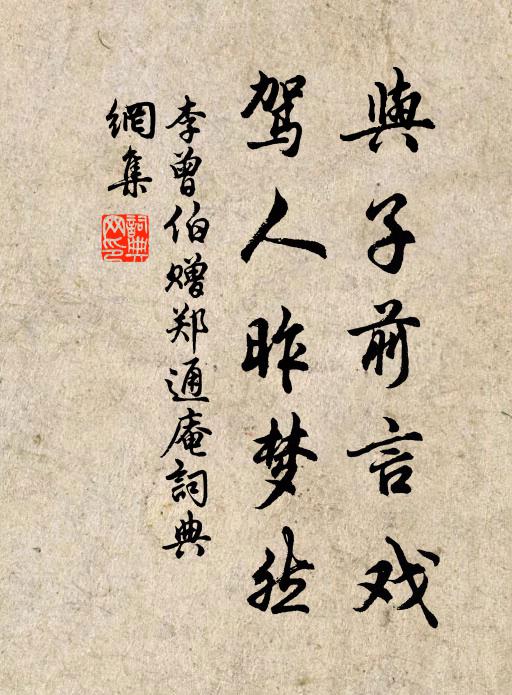 與子前言戏
驾人昨梦然
李曾伯赠郑通庵詞典
網集
詞典
网印